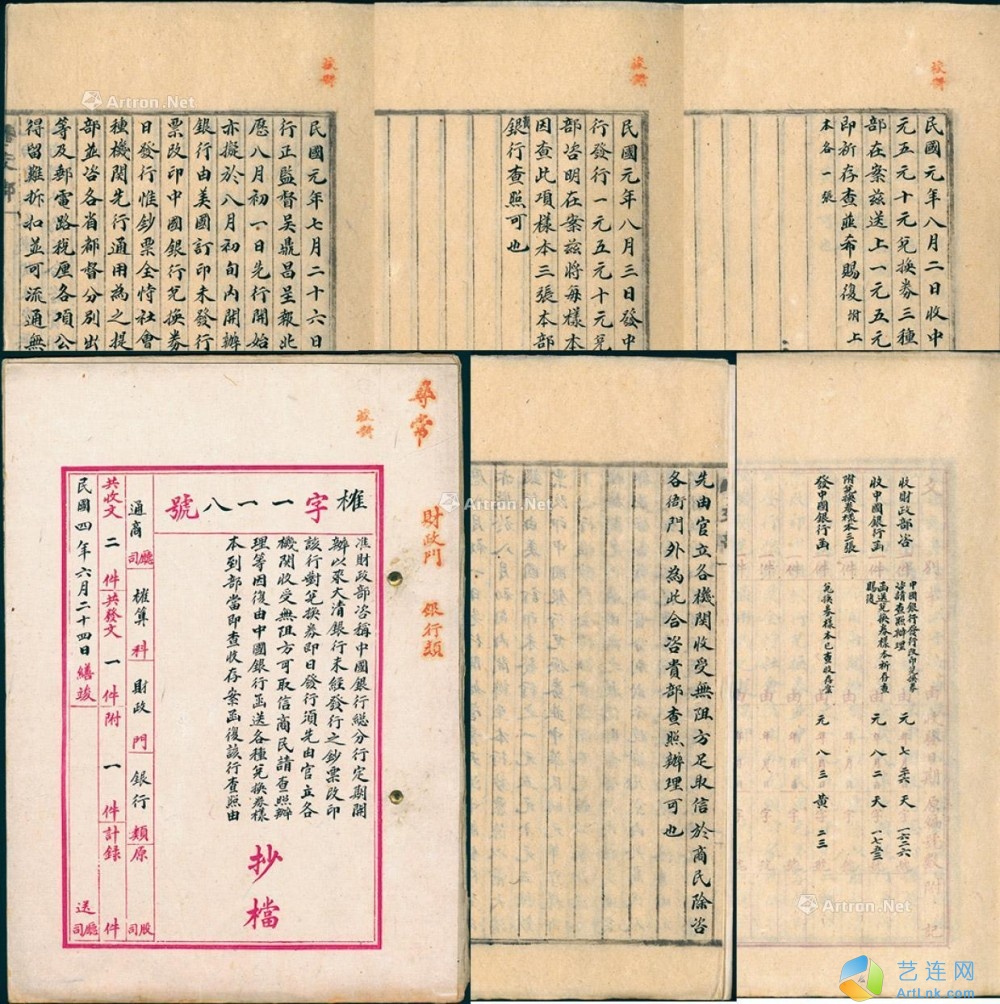 民國元年七月二十六日
行正監督吳鼎昌呈報此
曆八月初一日先行開始
亦擬於八月初旬內開辦
銀行由美國訂印未發行
票改印中國銀行兌換券
日發行惟鈔票全恃社會
種機関先行通用為之提
部並咨各省都督分別出
等及郵電路稅厘各項公
得留難折扣並可流通無
民國元年八月三日發中
行發行一元五元十元兌
部咨明在案茲將每樣本
因查此項樣本三張本部
銀行查照可也
民國元年八月二日收中
元五元十元兌換券三種
部在案茲送上一元五元
即祈存查並布賜復附上
本各一張
尋常
財政門 銀行類
榷字一一八號
准財政部咨稱中國銀行總分行定期開
辦以來大清銀行未經發行之鈔票改印
該行對兌換券即日發行須先由官立各
機関收受無阻方可取信商民請查照辦
理等因復由中國銀行函送各種兌換券樣
本到部當即查收存案函復該行查照由
抄檔
通商廳司 榷算科 財政門 銀行類 原 股司
共收文二件共發文一件附一件計錄 件
民國四年六月二十四日繕竣 送廳司
先由官立各機関收受無阻方足取信於商民除咨
各衙門外為此合咨貴部查照辦理可也
收財政部咨 中國銀行發行改印兌換券咨請查照辦理 元 七 天 一六二六
收中國銀行函 函送兌換券樣本祈存查賜復 元 八 二 天
附兌換券樣本三張
發中國銀行函 兌換券樣本已查收存案 元 八 三 黃 二三
Artron.Net
Artron.Net
Artron.Net
Artron.Net
Artron.Net
艺连网
ArtLnk.com